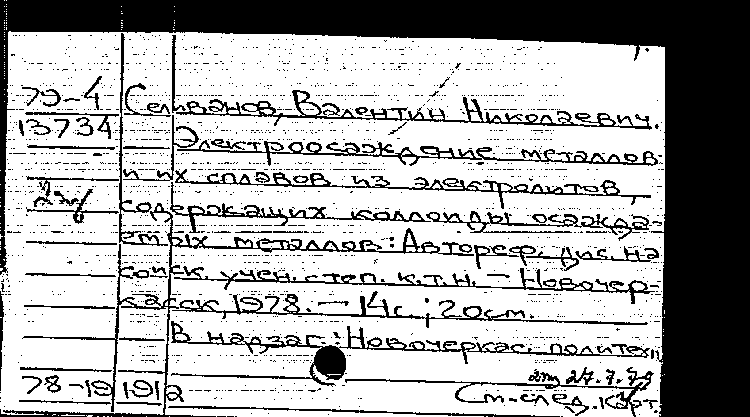 79-4 Селиванов, Валентин Николаевич.
13734 Электроосаждение металлов
и их сплавов из электролитов,
2эк/
содержащих коллоиды осажда-
емых металлов: Автореф. дис. на
соиск. учен. степ. к.т.н. - Новочер-
касск, 1978. - 14с; 20см.
В надзаг.: Новочеркас. политехн
27.7.79
78-19191а См. след. карт.